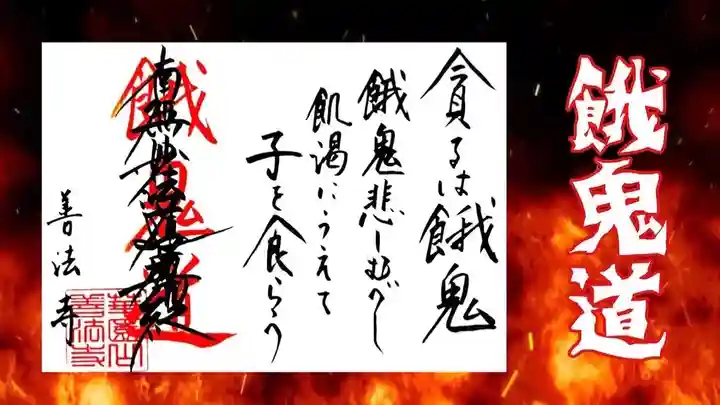 餓鬼道
貪るは餓鬼
餓鬼悲しむべし
飢渇にうえて
子を食らう
餓鬼道
南無妙法蓮華経
善法寺